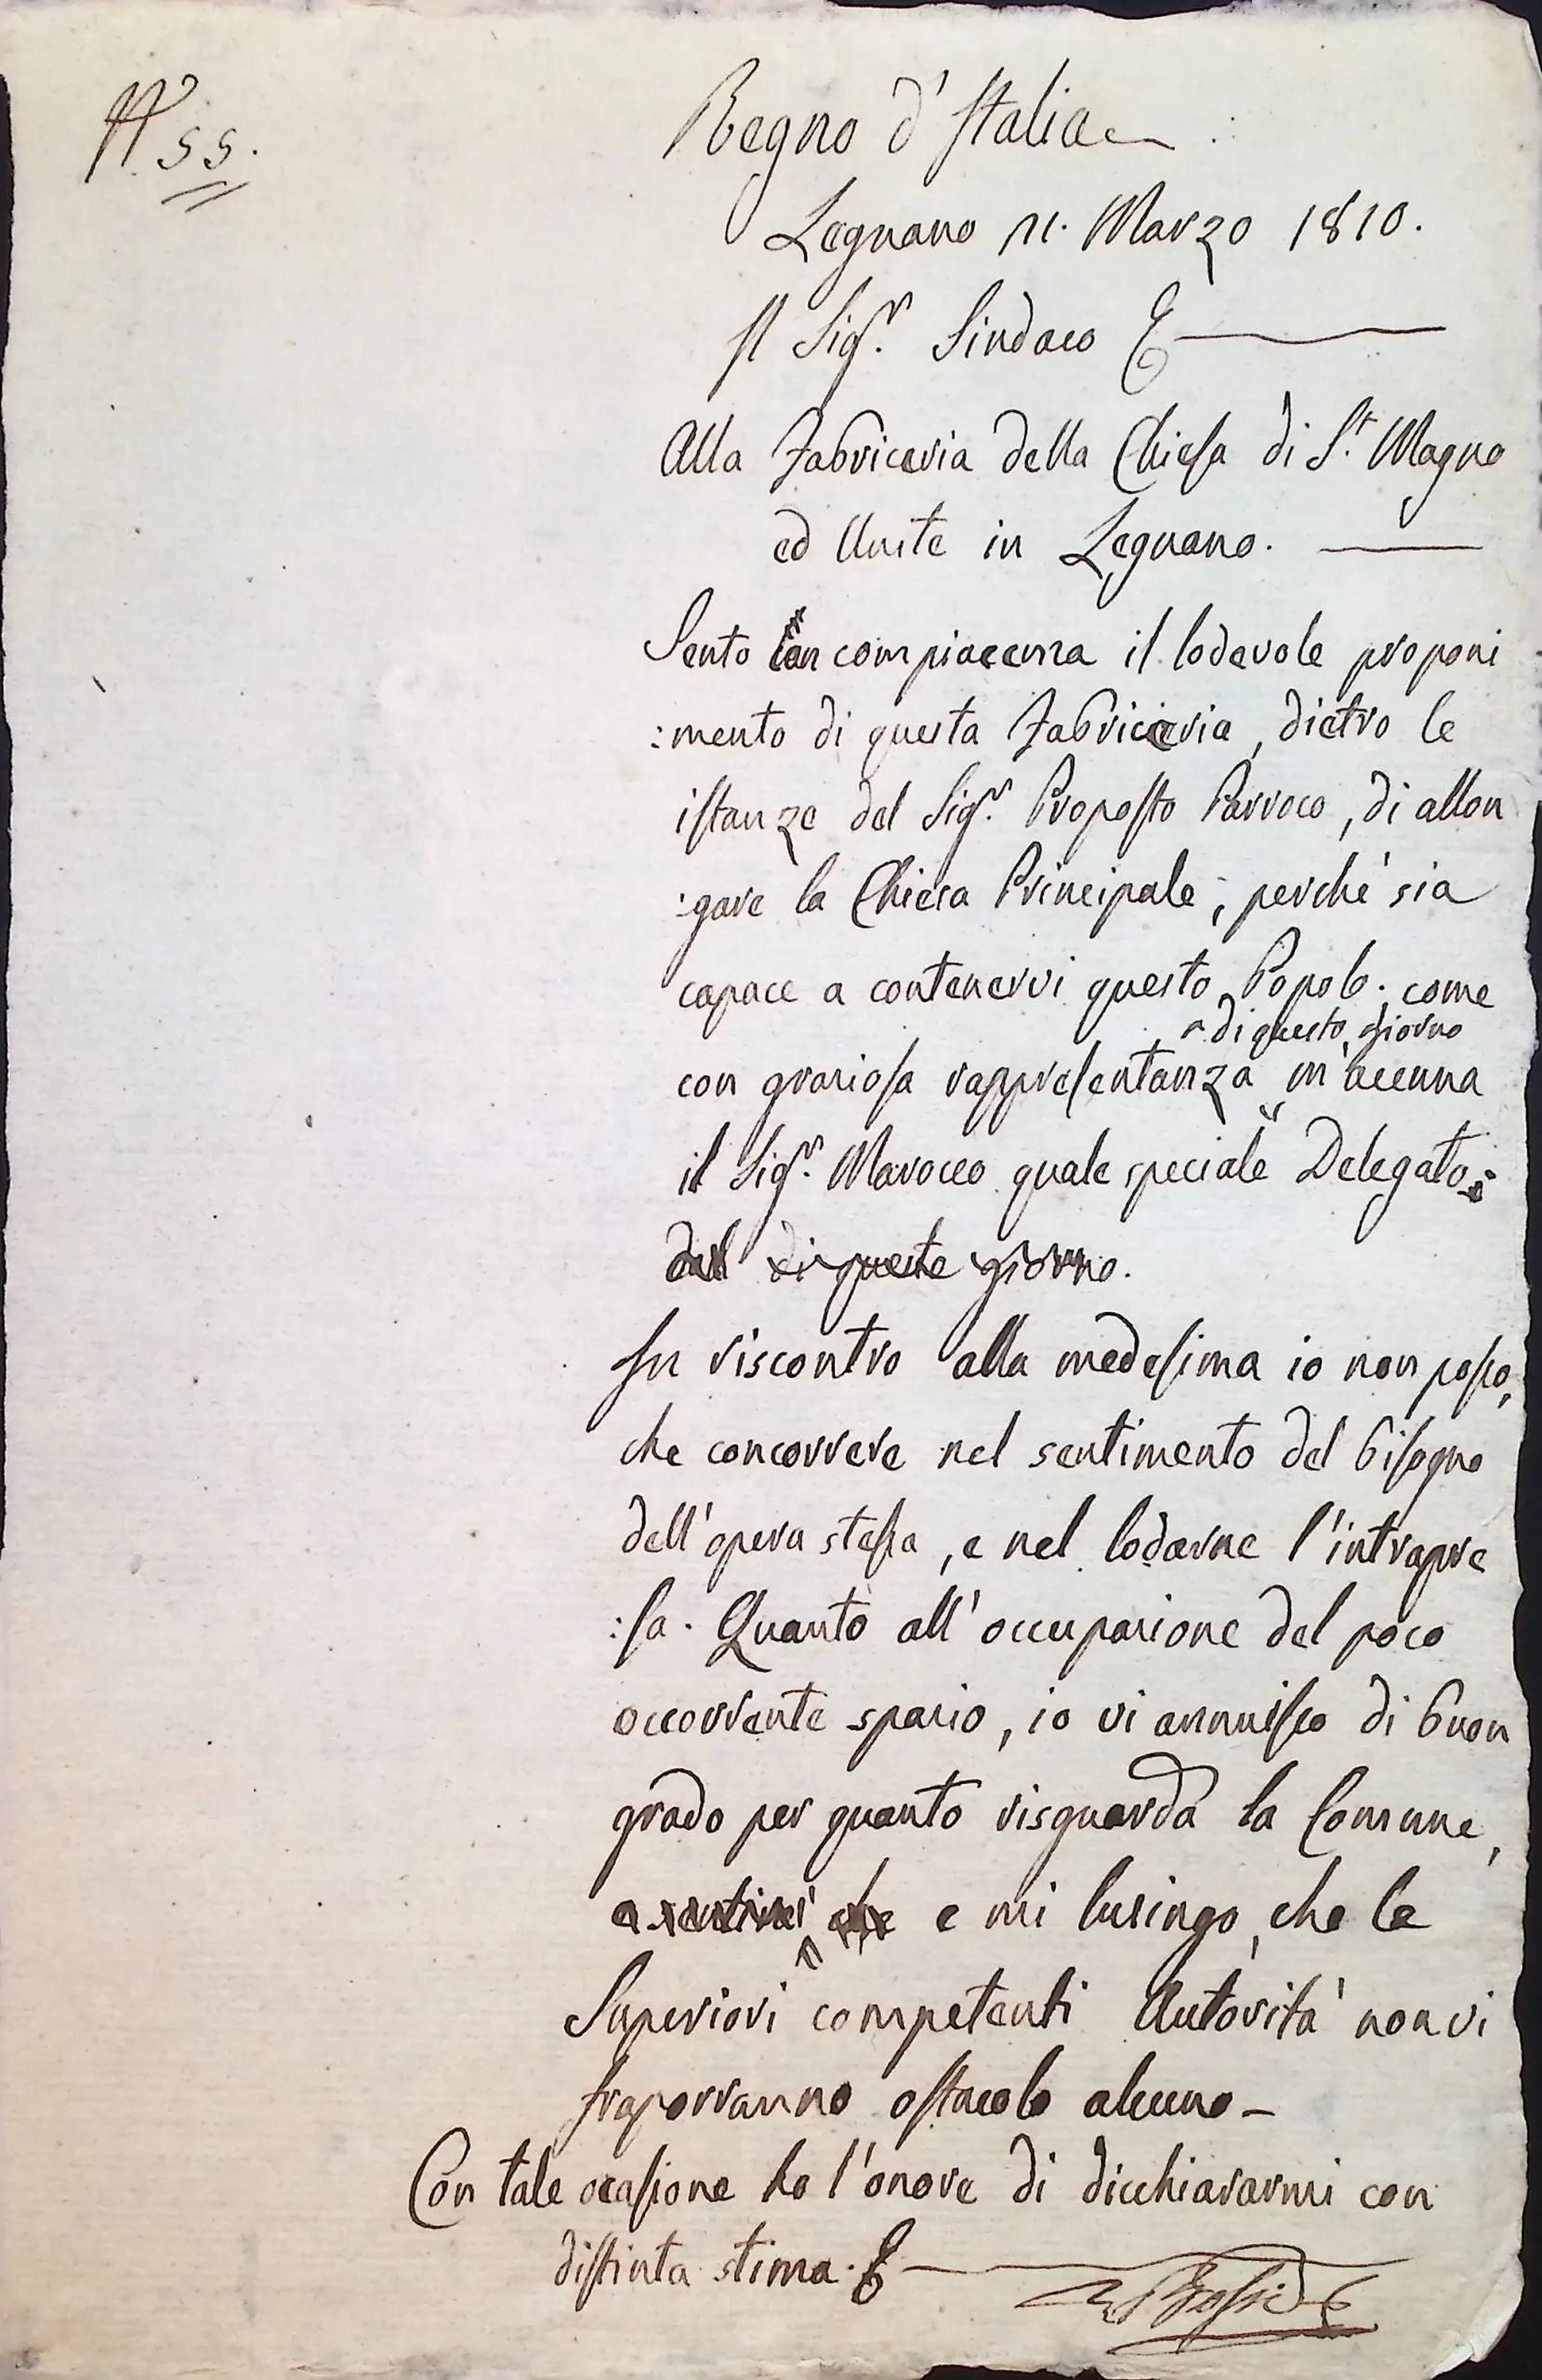 N.° 55.
Regno d'Italia
Legnano 11. Marzo 1810.
Il Sig.r Sindaco &
Alla Fabriceria della Chiesa di S.t Magno
ed Unite in Legnano.
Sento con compiacenza il lodevole proponi
:mento di questa Fabriceria, dietro le
istanze del Sig.r Proposto Parroco, di allon
:gare la Chiesa Principale; perchè sia
capace a contenervi questo Popolo. come
di questo giorno
con graziosa rappresentanza m'acenna
il Sig.r Marocco quale speciale Delegato
del di questo giorno.
In riscontro alla medesima io non posso,
che concorrere nel sentimento del bisogno
dell'opera stessa, e nel lodarne l'intrapre
:sa. Quanto all'occupazione del poco
occorrente spazio, io vi annuisco di buon
grado per quanto risguarda la Comune,
e mi lusingo, che le
Superiori competenti Autorità non vi
fraporranno ostacolo alcuno -
Con tale ocasione ho l'onore di dicchiararmi con
distinta stima. &